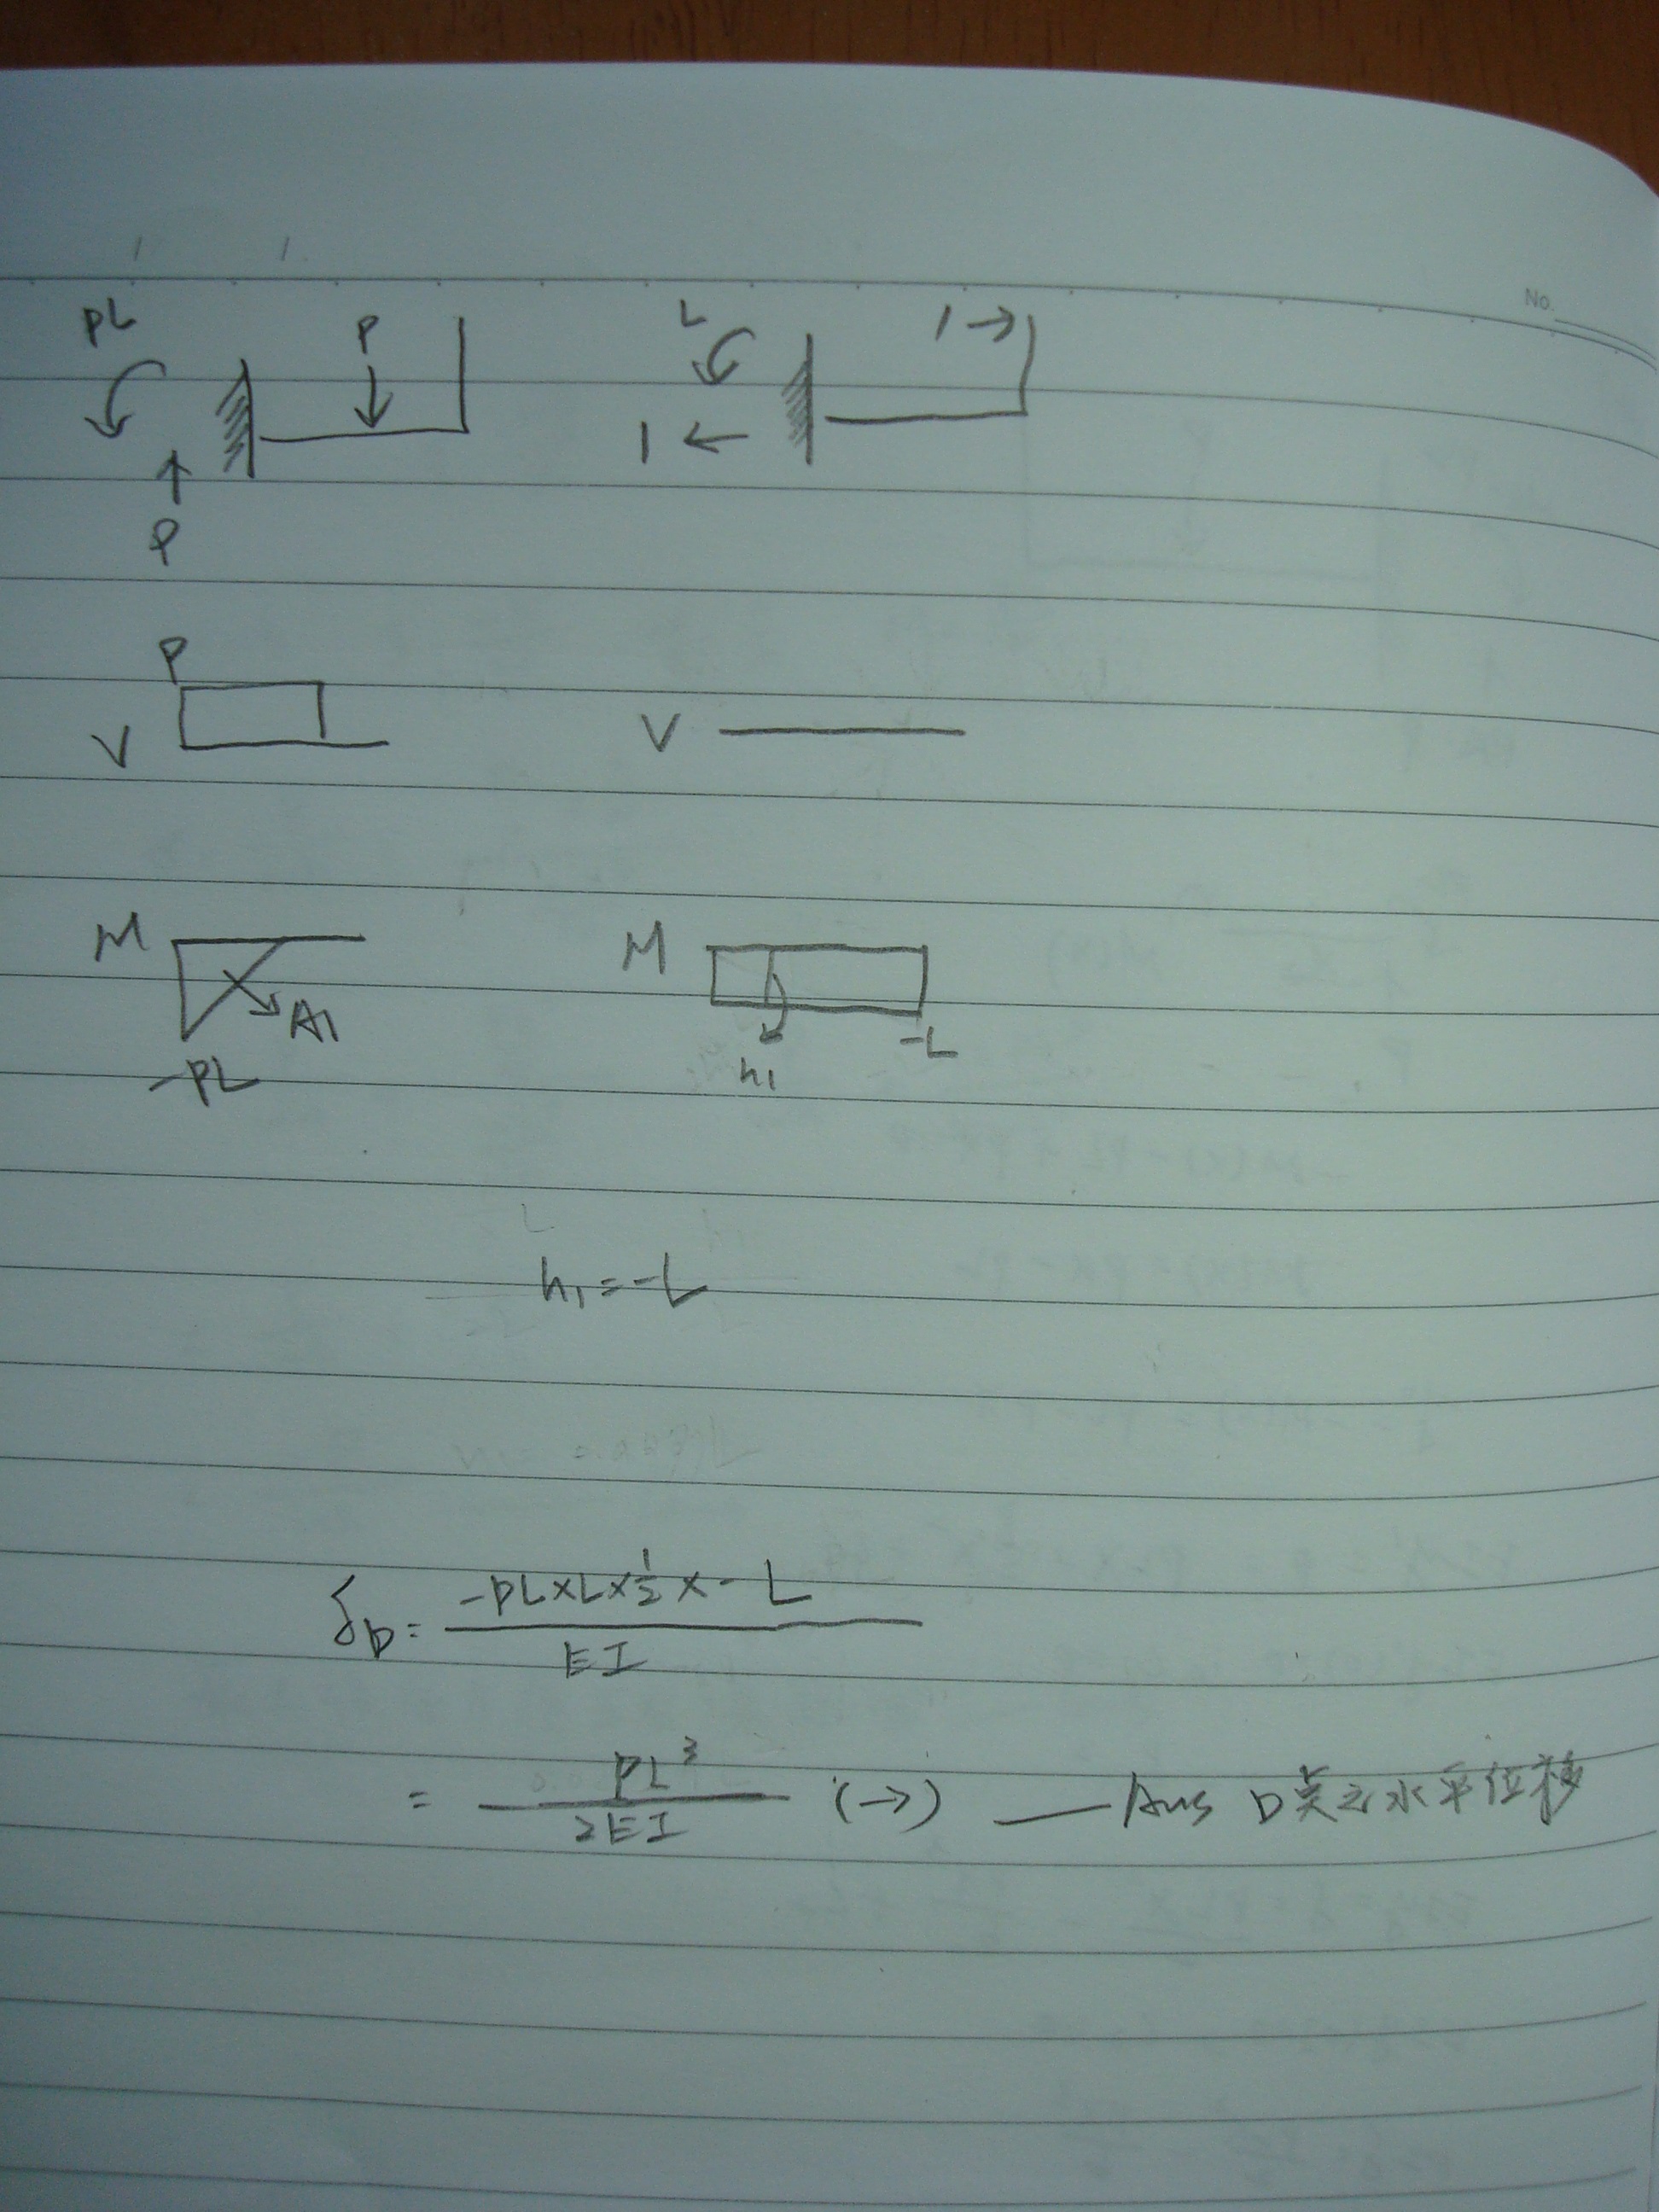 No.
PL P L 1→
1 ←
P
P
V V
M M
A1 -L
-PL h₁
h₁=-L
δD= -PL×L×½×-L / EI
= PL³ / 2EI (→) — Ans D点之水平位移